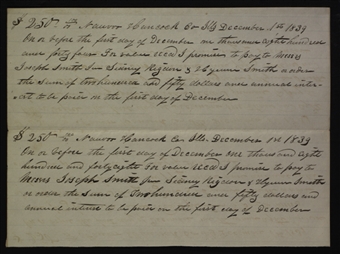 $ 250.00 Nauvoo Hancock Co Ills December 1st 1839
On or before the first day of December one thousand eight hundred
and forty four For value recd I promise to pay to Messrs
Joseph Smith Jun Sidney Rigdon & Hyrum Smith or order
the sum of two hundred and fifty dollars and annual inter-
est to be paid on the first day of December
$ 250.00 Nauvoo Hancock Co Ills. December 1st 1839
On or before the first day of December one thousand eight
hundred and forty eight For value recd I promise to pay to
Messrs Joseph Smith Jun Sidney Rigdon & Hyrum Smith
or order the sum of two hundred and fifty dollars and
annual interest to be paid on the first day of December